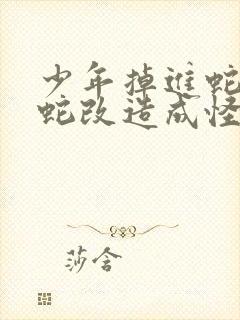 少年掉进蛇
蛇改造成怪
莎含